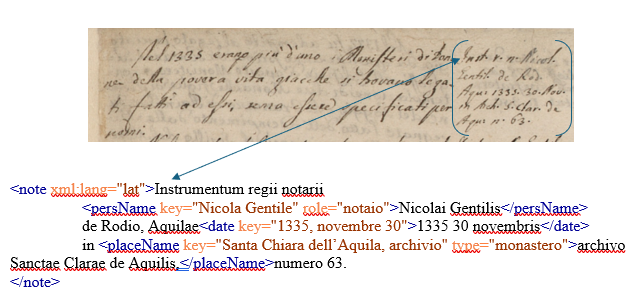 Nel 1335 erano più d'uno i Monisteri di don-
ne della povera vita giacche si trovano lega-
ti fatti ad essi senza essere specificati per
nomi.
Instr. r. n. Nicol.
Gentil. de Rod.
Aqu. 1335. 30. Nov.
in Arch. S. Clar. de
Aqu. n.° 63.
<note xml:lang="lat">Instrumentum regii notarii
<persName key="Nicola Gentile" role="notaio">Nicolai Gentilis</persName>
de Rodio, Aquilae<date key="1335, novembre 30">1335 30 novembris</date>
in <placeName key="Santa Chiara dell’Aquila, archivio" type="monastero">archivo
Sanctae Clarae de Aquilis,</placeName>numero 63.
</note>